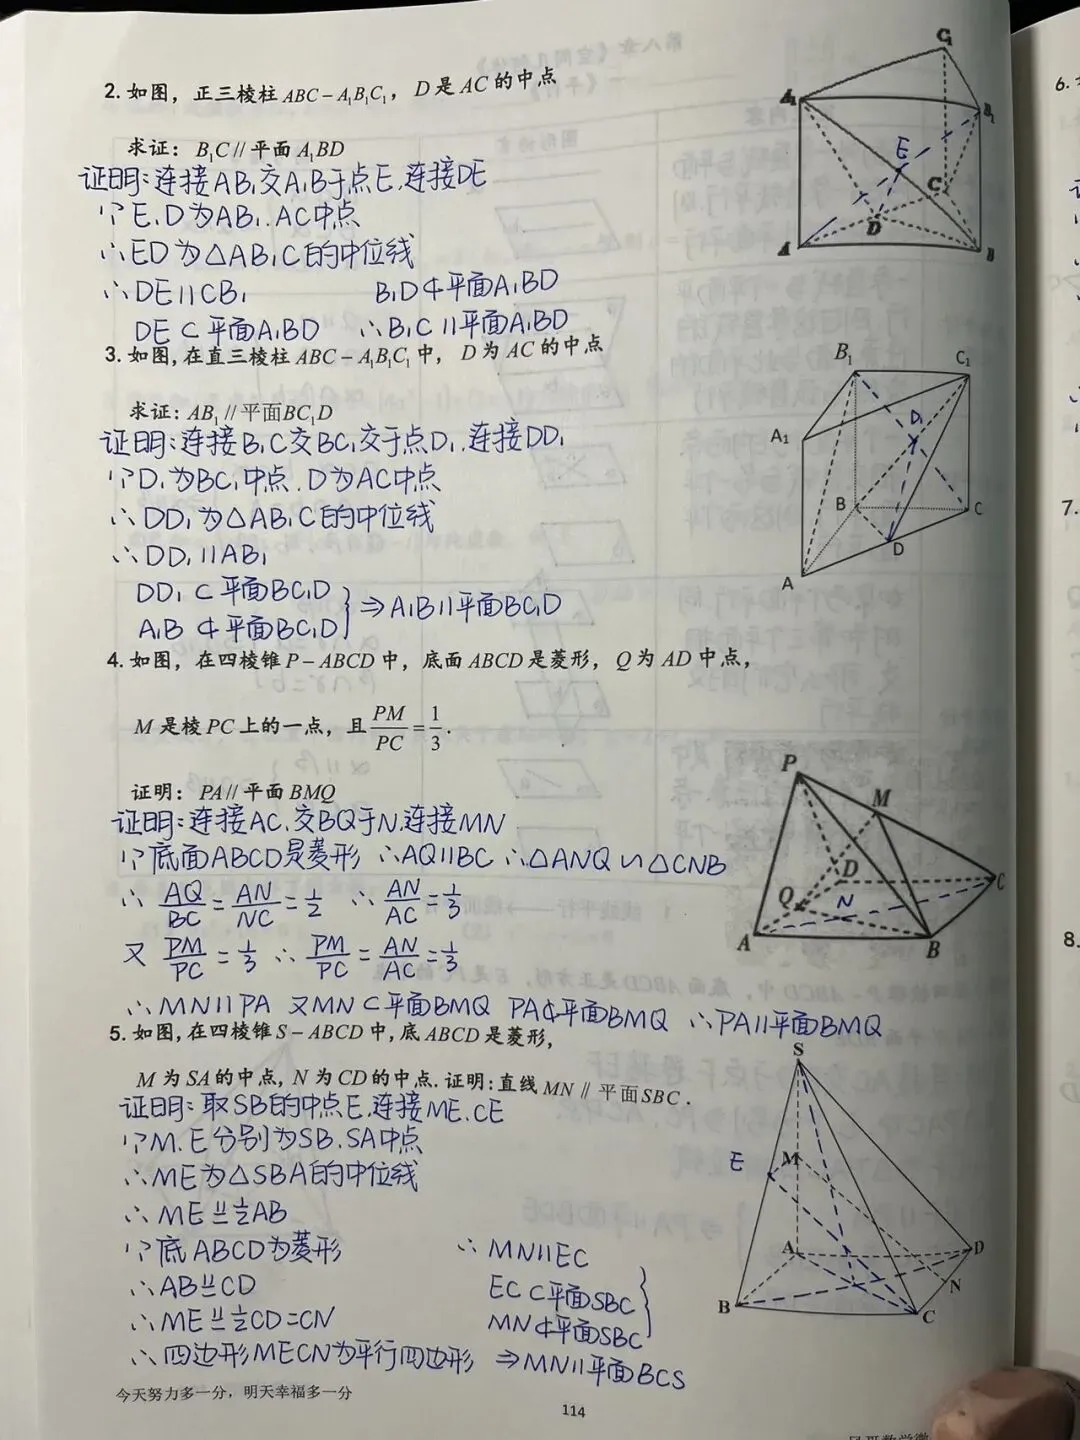 2. 如图，正三棱柱 ABC－A₁B₁C₁，D 是 AC 的中点
求证：B₁C // 平面 A₁BD
证明：连接AB₁交A₁B于点E.连接DE
∵E.D为AB₁.AC中点
∴ED为△AB₁C的中位线
∴DE∥CB₁ B₁D⊄平面A₁BD
DE⊂平面A₁BD ∴B₁C∥平面A₁BD
3. 如图, 在直三棱柱 ABC－A₁B₁C₁ 中，D 为 AC 的中点
求证: AB₁ // 平面BC₁D
证明:连接B₁C交BC₁交于点D₁.连接DD₁
∵D₁为BC₁中点.D为AC中点
∴DD₁为△AB₁C的中位线
∴DD₁∥AB₁
DD₁⊂平面BC₁D
A₁B⊄平面BC₁D } ⇒A₁B∥平面BC₁D
4. 如图，在四棱锥 P－ABCD 中，底面 ABCD 是菱形，Q 为 AD 中点，
M 是棱 PC 上的一点，且 PM/PC = 1/3.
证明：PA // 平面 BMQ
证明:连接AC.交BQ于N.连接MN
∵底面ABCD是菱形 ∴AQ∥BC ∴△ANQ∽△CNB
∴ AQ/BC = AN/NC = 1/2 ∴ AN/AC = 1/3
又 PM/PC = 1/3 ∴ PM/PC = AN/AC = 1/3
∴MN∥PA 又MN⊂平面BMQ PA⊄平面BMQ ∴PA∥平面BMQ
5. 如图, 在四棱锥 S－ABCD 中, 底 ABCD 是菱形,
M 为 SA 的中点, N 为 CD 的中点. 证明: 直线 MN ∥ 平面 SBC .
证明:取SB的中点E.连接ME.CE
∵M.E分别为SB.SA中点
∴ME为△SBA的中位线
∴ME∥=1/2AB
∵底ABCD为菱形 ∴MN∥EC
∴AB∥=CD EC⊂平面SBC
∴ME∥=1/2CD=CN MN⊄平面SBC }
∴四边形MECN为平行四边形 ⇒MN∥平面BCS
今天努力多一分，明天幸福多一分
114
C₁
A₁
B₁
E
C
D
A
B
B₁
C₁
D₁
A₁
B
C
D
A
P
M
D
C
Q
N
A
B
S
E
M
A
D
N
B
C
6.
7.
8.